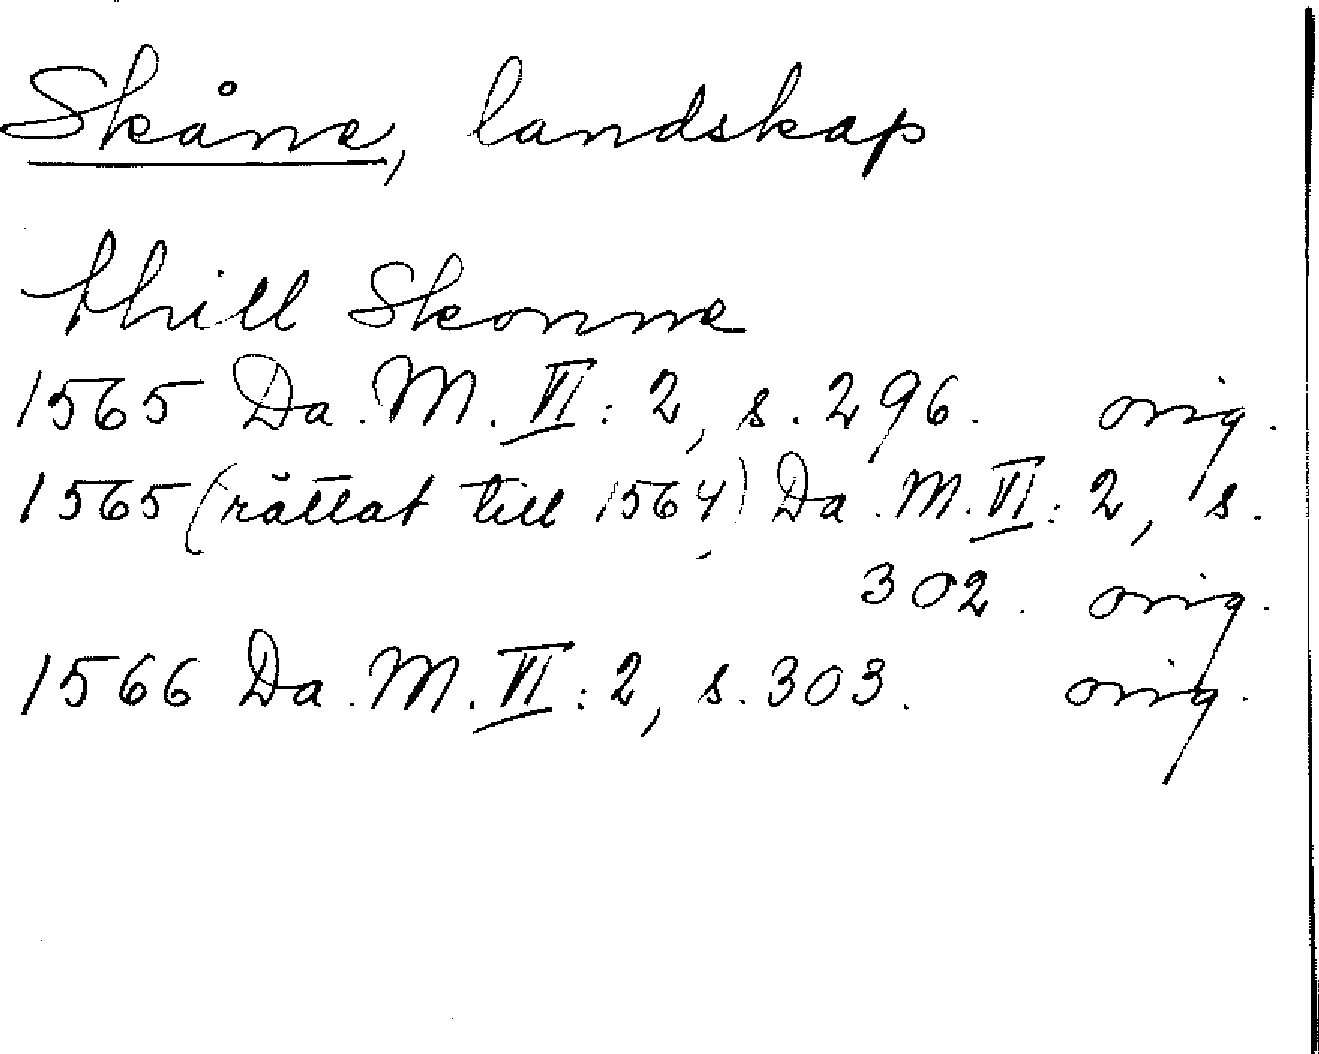 Skåne, landskap
thill Skonne
1565 Da. M. VI: 2, s. 296. orig.
1565 (rättat till 1564) Da. M. VI: 2, s.
302. orig.
1566 Da. M. VI: 2, s. 303. orig.